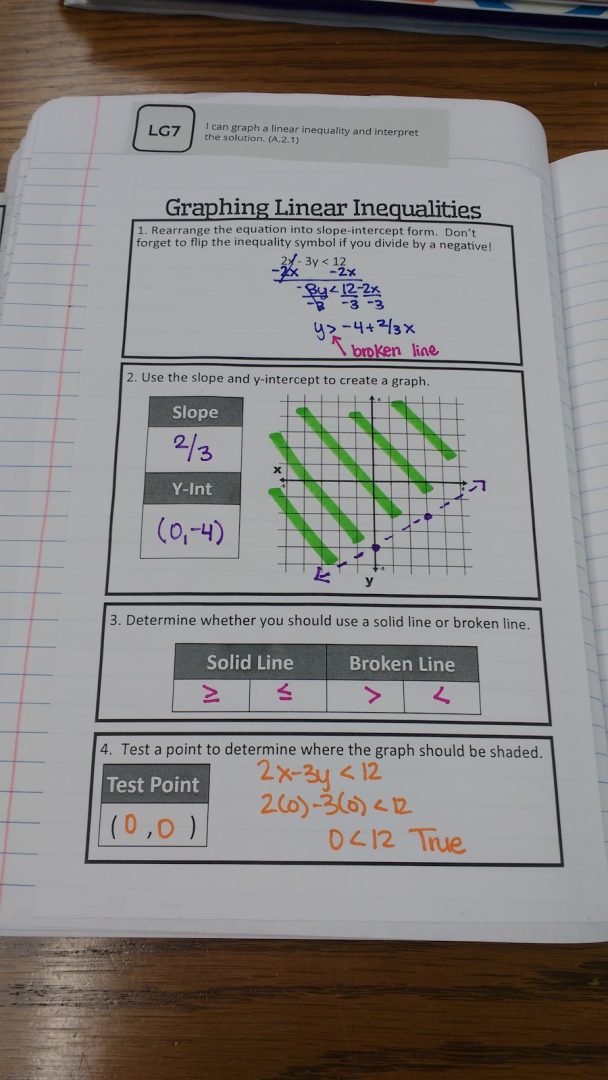 LG7
I can graph a linear inequality and interpret
the solution. (A.2.1)
Graphing Linear Inequalities
1. Rearrange the equation into slope-intercept form. Don't
forget to flip the inequality symbol if you divide by a negative!
2x - 3y < 12
-2x -2x
-3y < 12-2x
-3 -3 -3
y > -4 + 2/3 x
broken line
2. Use the slope and y-intercept to create a graph.
Slope
2/3
Y-Int
(0,-4)
x
y
3. Determine whether you should use a solid line or broken line.
Solid Line Broken Line
≥ ≤ > <
4. Test a point to determine where the graph should be shaded.
Test Point
(0,0)
2x-3y < 12
2(0)-3(0) < 12
0 < 12 True